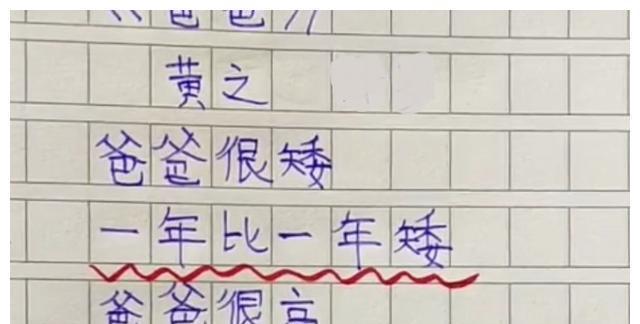 《爸爸》
黄之
爸爸很矮
一年比一年矮
爸爸很高